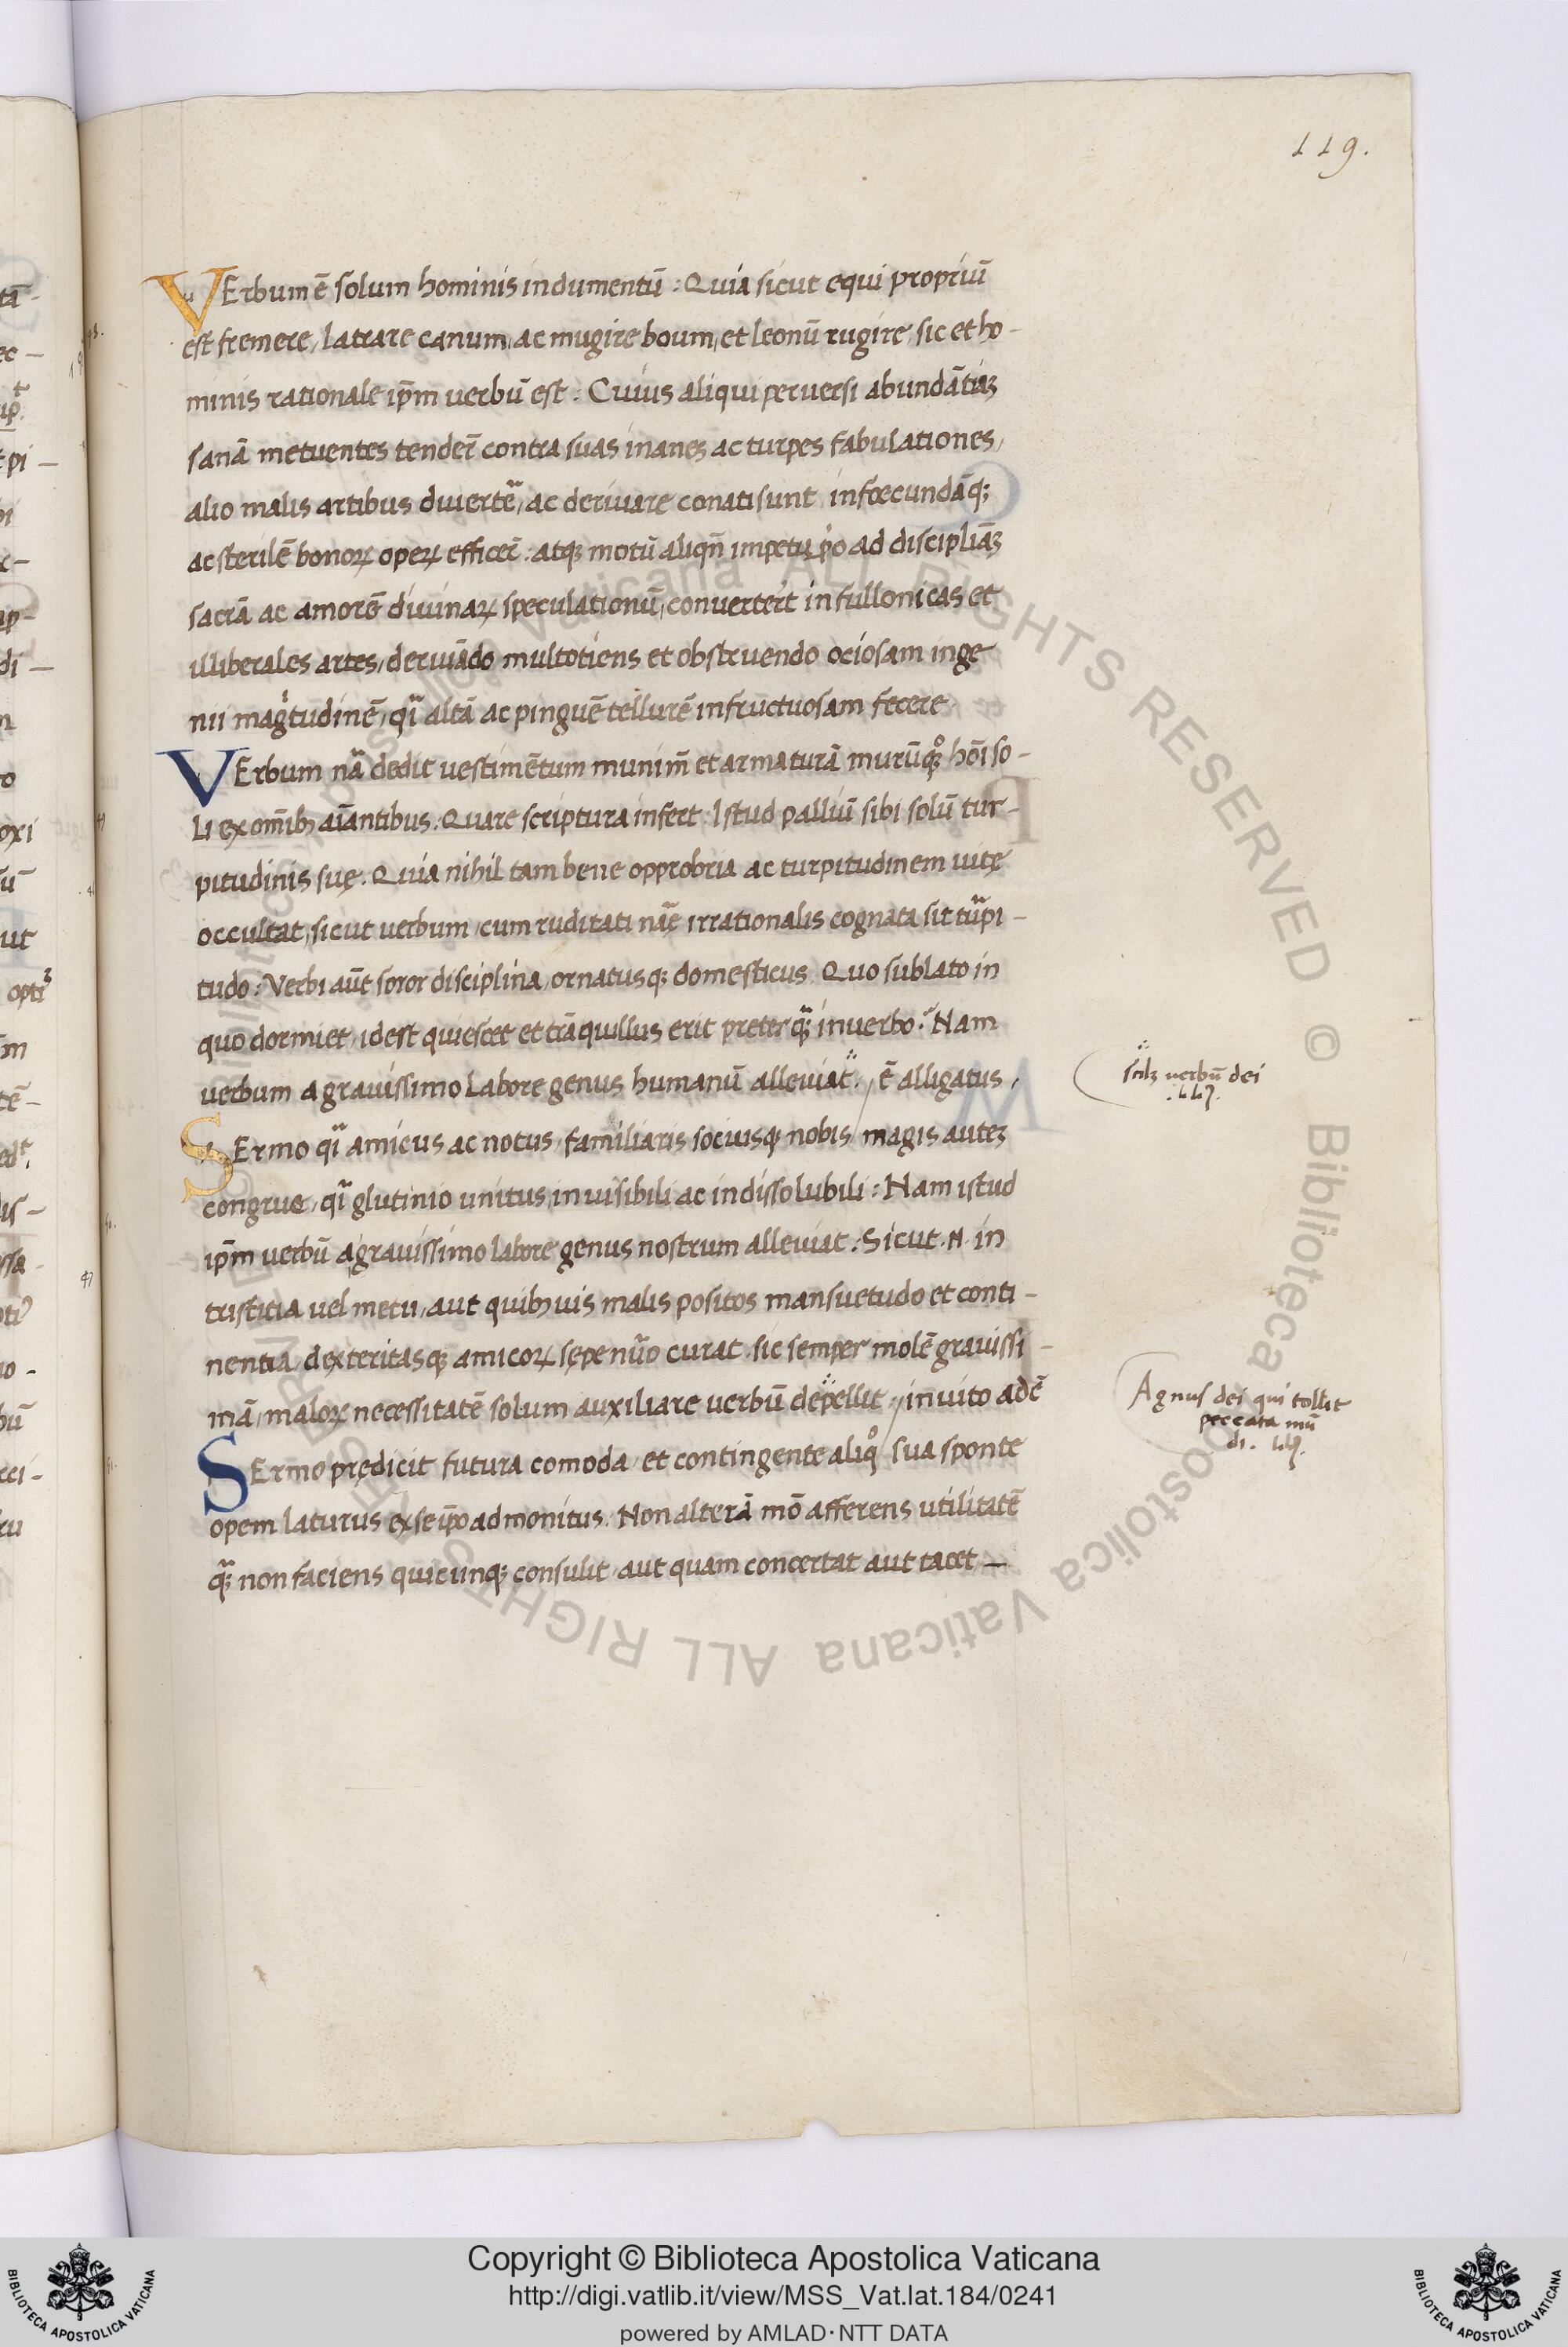 119.
VErbum ē solum hominis indumentū : Quia sicut equi propriū
est fremere, latrare canum, ac mugire boum, et leonū rugire, sic et ho-
minis rationale ip̄m uerbū est : Cuius aliqui peruersi abundātiaꝫ
sanā metuentes tender̄ contra suas inanes ac turpes fabulationes,
alio malis artibus diuertē, ac deriuare conati sunt infœcundāqꝫ
ac sterilē bonoꝝ opeꝝ efficer̄ : atqꝫ motū aliqn̄ impetu ad displiāꝫ
sacrā ac amorē diuinaꝝ speculationū, conuertert in fullonicas et
illiberales artes, deriuādo multotiens et obstruendo ociosam inge
nii magͥtudinē, qͣ altā ac pinguē tellurē infructuosam fecere.
VErbum nā dedit uestimētum munim̄ et armaturā murūqꝫ hōi so-
li ex omībꝫ aīantibus. Quare scriptura infert. Istud palliū sibi solū tur-
pitudinis suę. Quia nihil tam bene opprobria ac turpitudinem uitę
occultat, sicut uerbum, cum ruditati nāę irrationalis cognata sit tūpi-
tudo : Verbi aūt soror disciplina, ornatusqꝫ domesticus. Quo sublato in
quo dormiet, idest quiescet et trāquillus erit preterqͣꝫ in uerbo. Nam
uerbum a grauissimo labore genus humanū alleuiat. ē alligatus,
SErmo qͣ amicus ac notus, familiaris sociusqꝫ nobis magis auteꝫ
congrue, qͣ glutinio unitus, inuisibili ac indissolubili : Nam istud
ip̄m uerbū a grauissimo labore genus nostrum alleuiat : Sicut .N. in
tristitia uel metu, aut quibꝫuis malis positos mansuetudo et conti-
nentia dexteritasqꝫ amicoꝝ sępenūo curat. sic semper molē grauissi-
mā, maloꝝ necessitatē solum auxiliare uerbū depellit. inuito adē
SErmo prędicit futura comoda, et contingente aliqͦ sua sponte
opem laturus ex seip̄o admonitus. Non alterā mō afferens utilitatē
qͣꝫ non faciens quicunqꝫ consulit, aut quam concertat aut tacet —
scilꝫ uerbū dei
Agnus dei qui tollit
peccata mū
di.
Copyright © Biblioteca Apostolica Vaticana
http://digi.vatlib.it/view/MSS_Vat.lat.184/0241
powered by AMLAD·NTT DATA
BIBLIOTECA APOSTOLICA VATICANA
BIBLIOTECA APOSTOLICA VATICANA